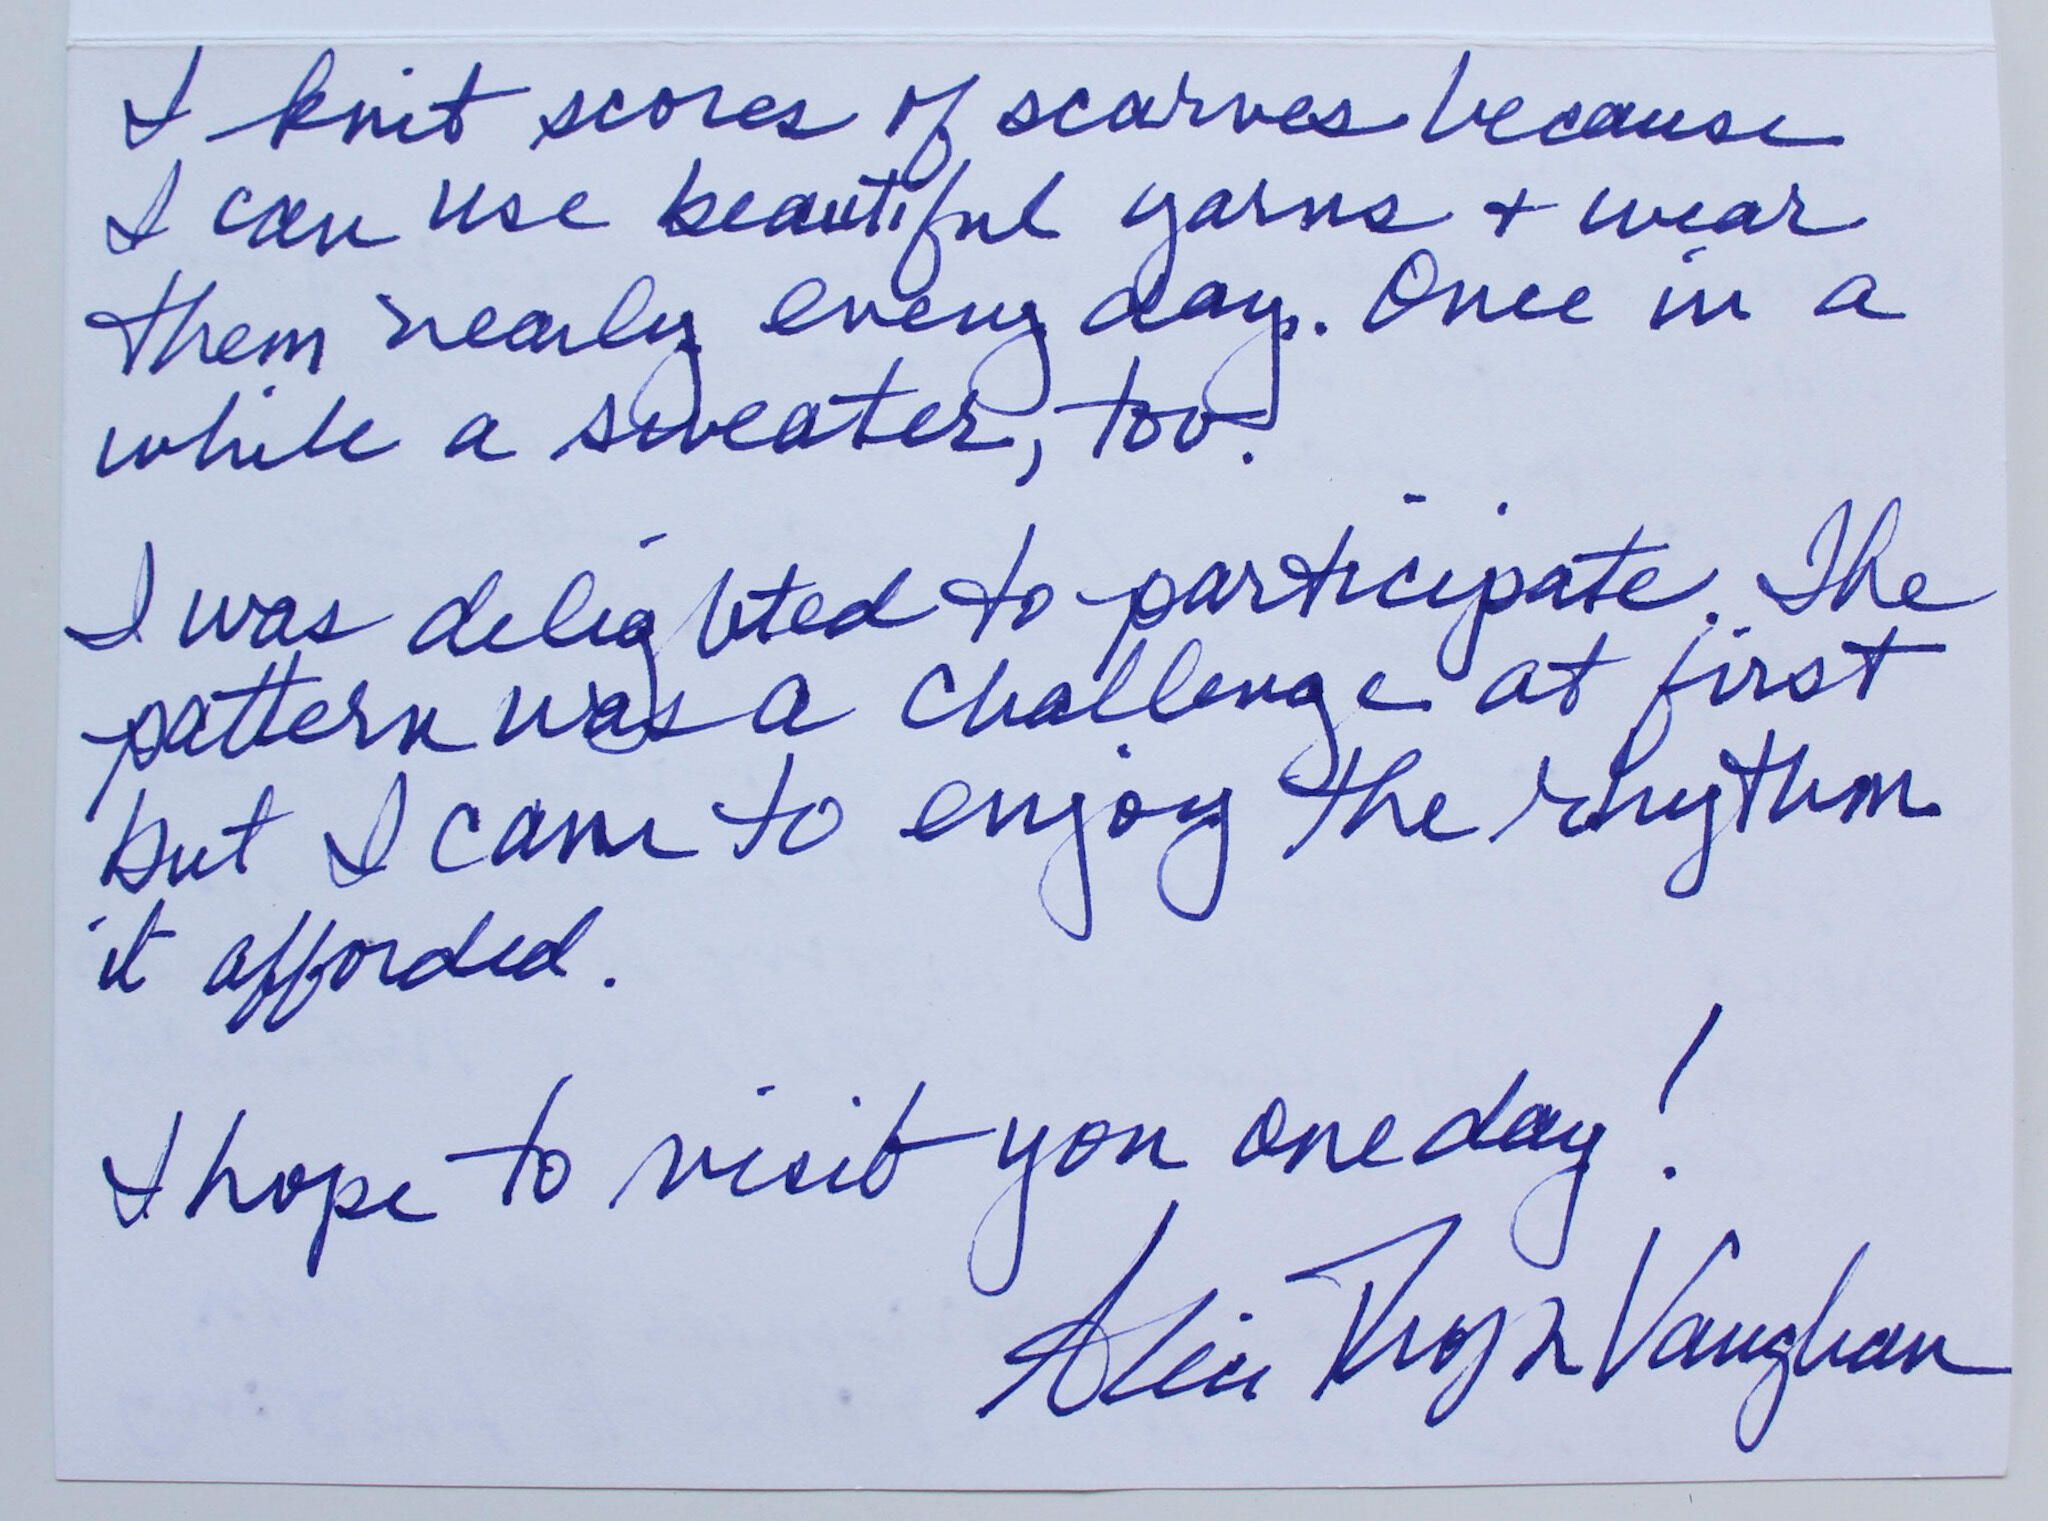 I knit scores of scarves because
I can use beautiful yarns + wear
them nearly every day. Once in a
while a sweater, too.
I was delighted to participate. The
pattern was a challenge at first
but I came to enjoy the rhythm
it afforded.
I hope to visit you one day!
Vaughan